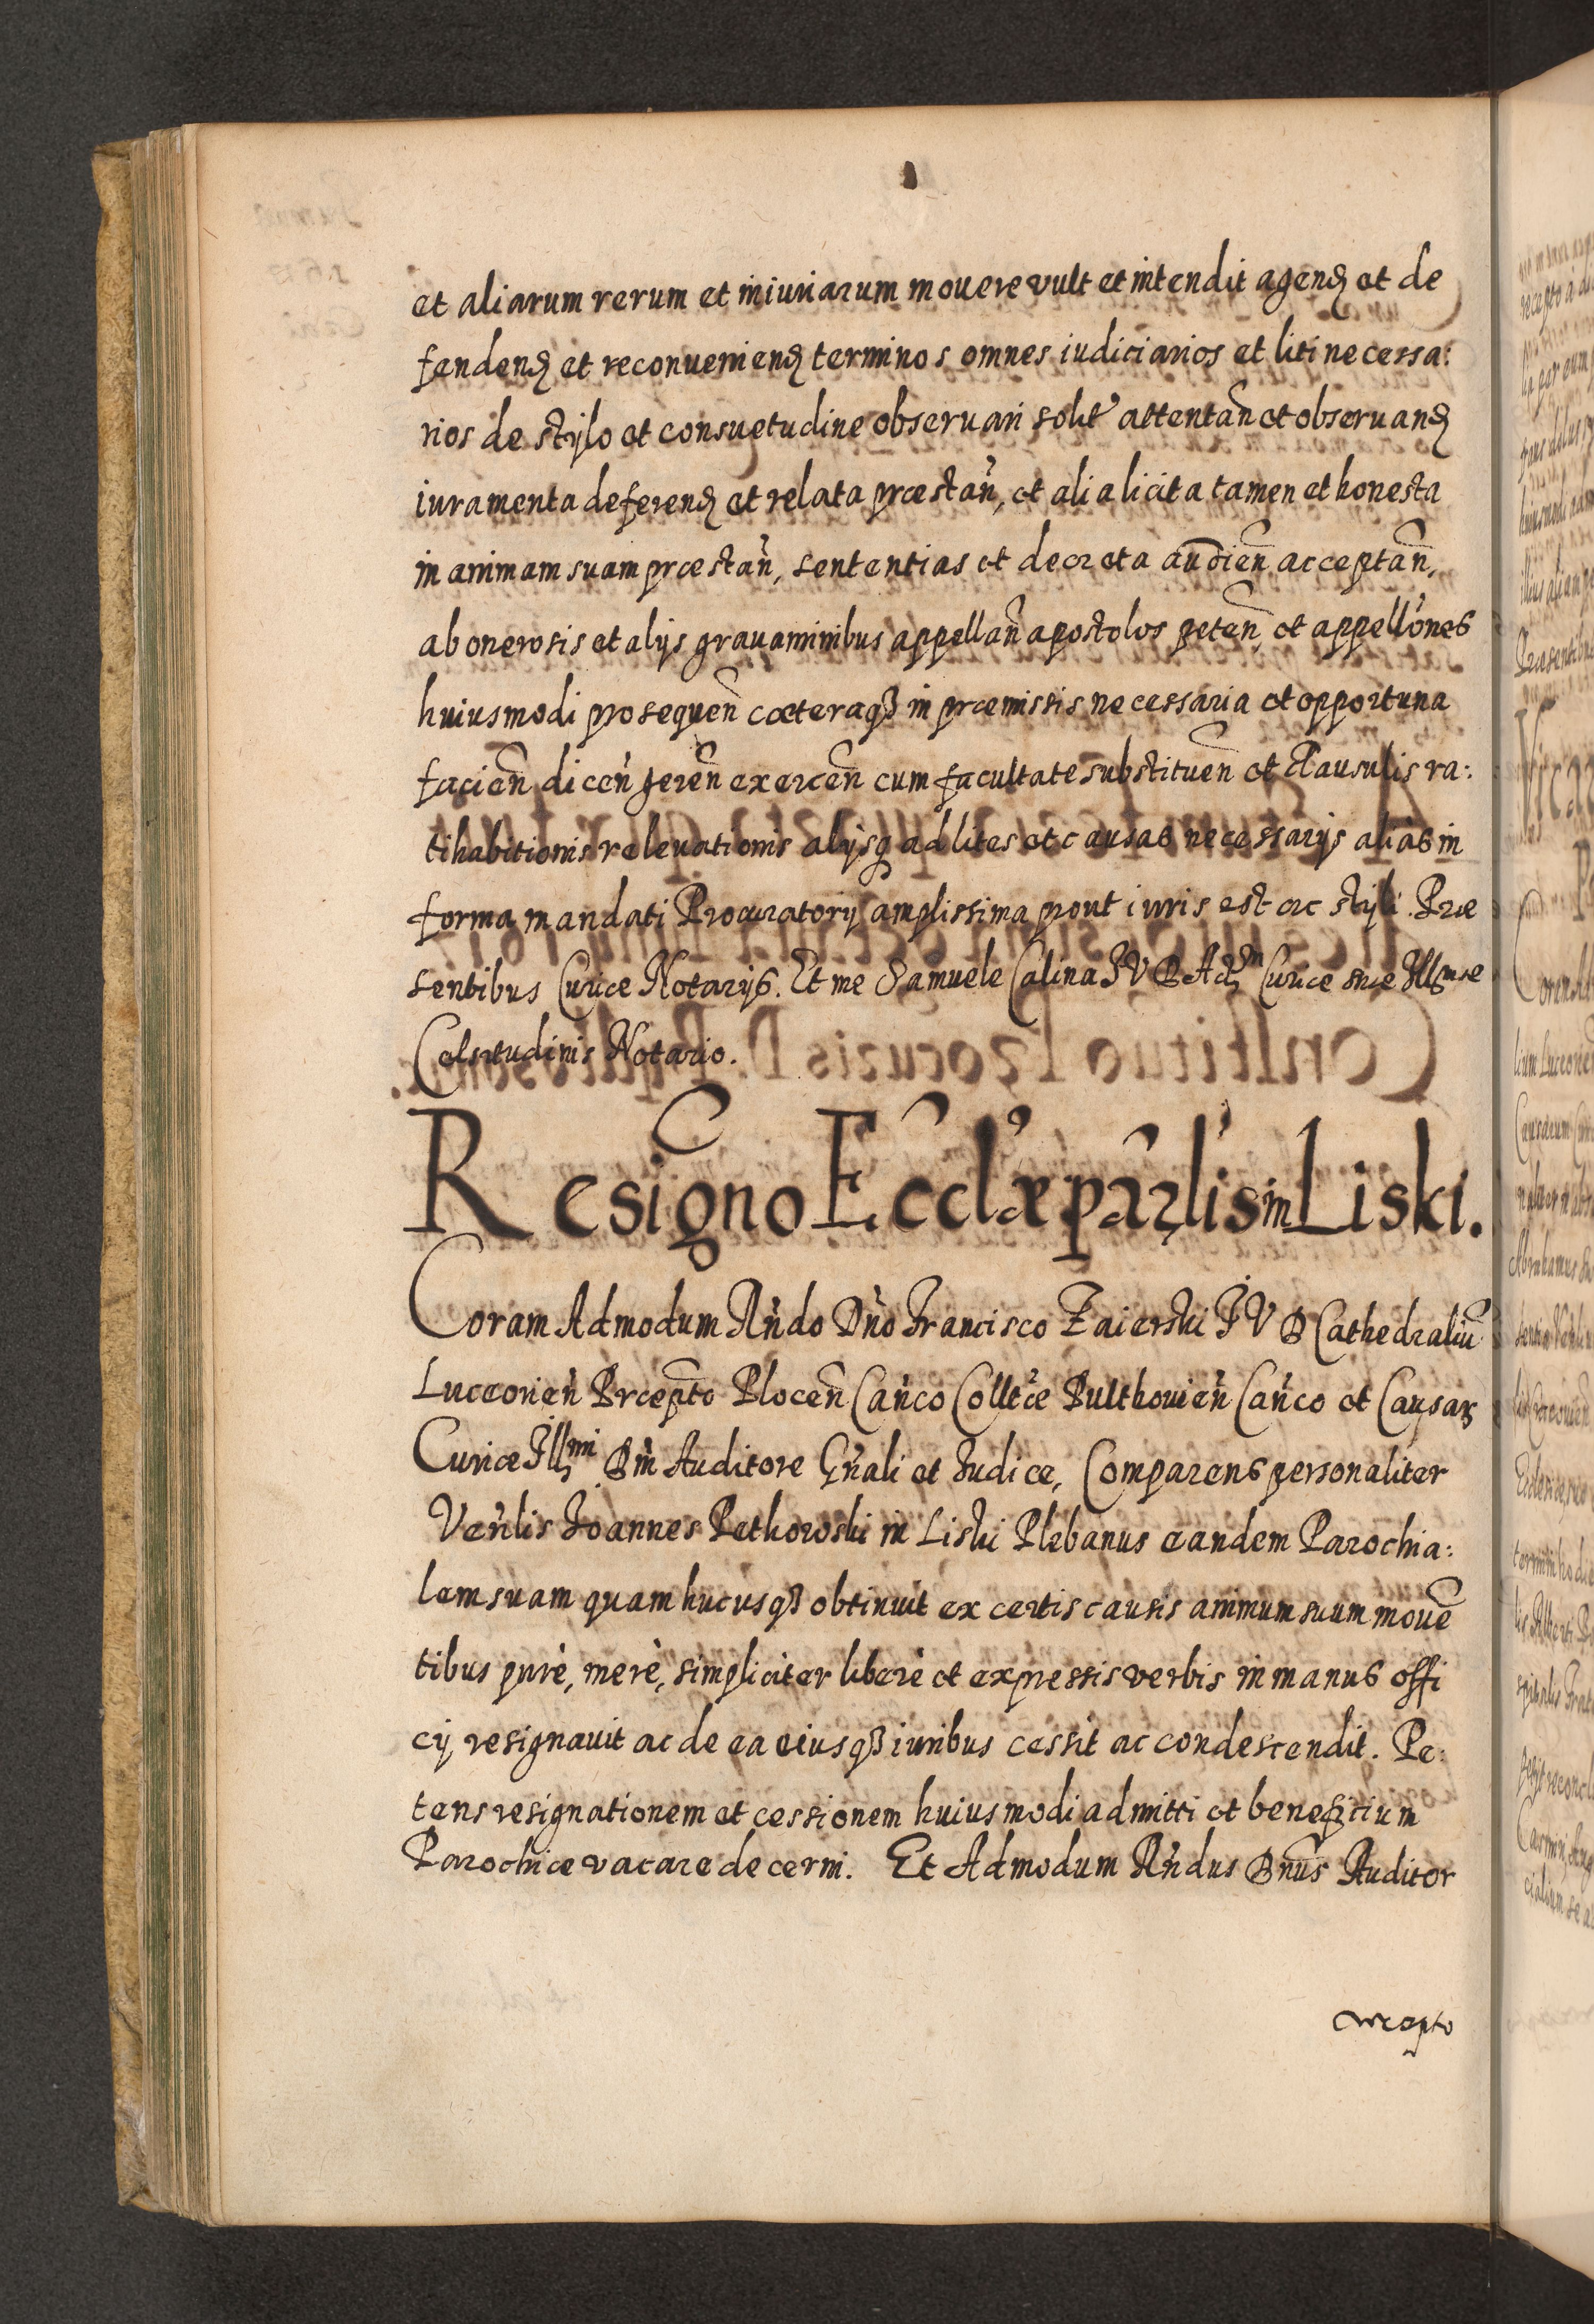 et aliarum rerum et iniuriarum mouere vult et intendit agend et de
fendend et reconueniend terminos omnes iudiciarios et liti necessa:
rios de stylo et consuetudine obseruari solit attentan et obseruand
iuramenta deferend et relata præstan, et alia licita tamen et honesta
in animam suam præstan, sententias et decreta audien acceptan,
ab onerosis et alijs grauaminibus appellan apostolos peten, et appellones
huiusmodi prosequen cæteraqȝ in præmissis necessaria et opportuna
facien dicen geren exercen cum facultate substituen et Clausulis ra:
tihabitionis releuationis alijsq ad lites et causas necessarijs aliàs in
forma mandati Procuratorij amplissima prout iuris est ac styli. Præ
sentibus Curiæ Notarijs. Et me Samuele Calina JVD Curiæ suæ Illmæ
Celsitudinis Notario.
Resigno Ecclæ parlis in Liski.
Coram Admodum Rndo Dno Francisco Zaierski JVD Cathedraliu
Luceorien Præpto Plocen Canco Colltæ Pultouien Canco et Causar
Curiæ Illmi Dni Auditore Gnali et Iudice, Comparens personaliter
Venlis Joannes Petkowski in Liski Plebanus eandem Parochia:
lem suam quam hucusqȝ obtinuit ex certis causis animum suum mouē
tibus purè, merè, simpliciter liberè et expressis verbis in manus offi
cij resignauit ac de ea eiusqȝ iuribus cessit ac condescendit. Pe:
tens resignationem et cessionem huiusmodi admitti et beneficium
Parochiæ vacare decerni. Et Admodum Rndus Dnus Auditor